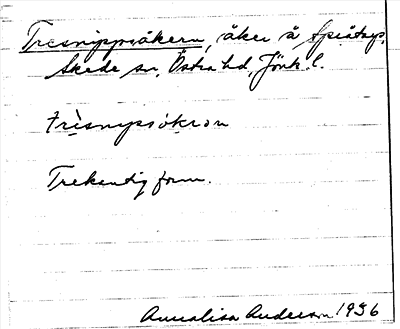 Tresnippsåkern, åker å Spåtorp,
Skede sn, Östra hd, Jönk. l.
trìsnypsòkrɔn
Trekantig form.
Annalisa Anderson 1936